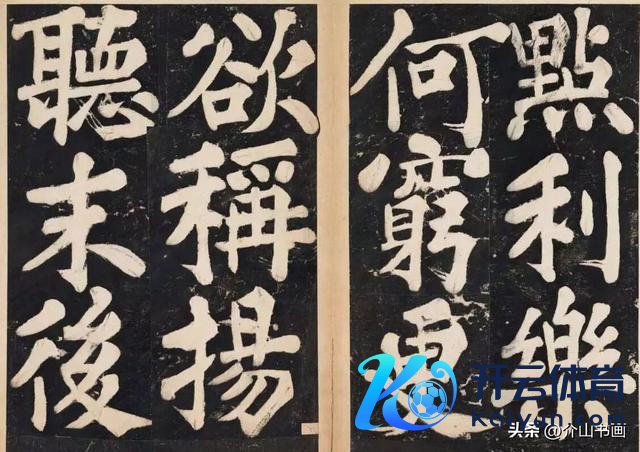 點利樂
何窮更
欲稱揚
聽末後
开云体育
Kaiyun.com
头条@介山书画